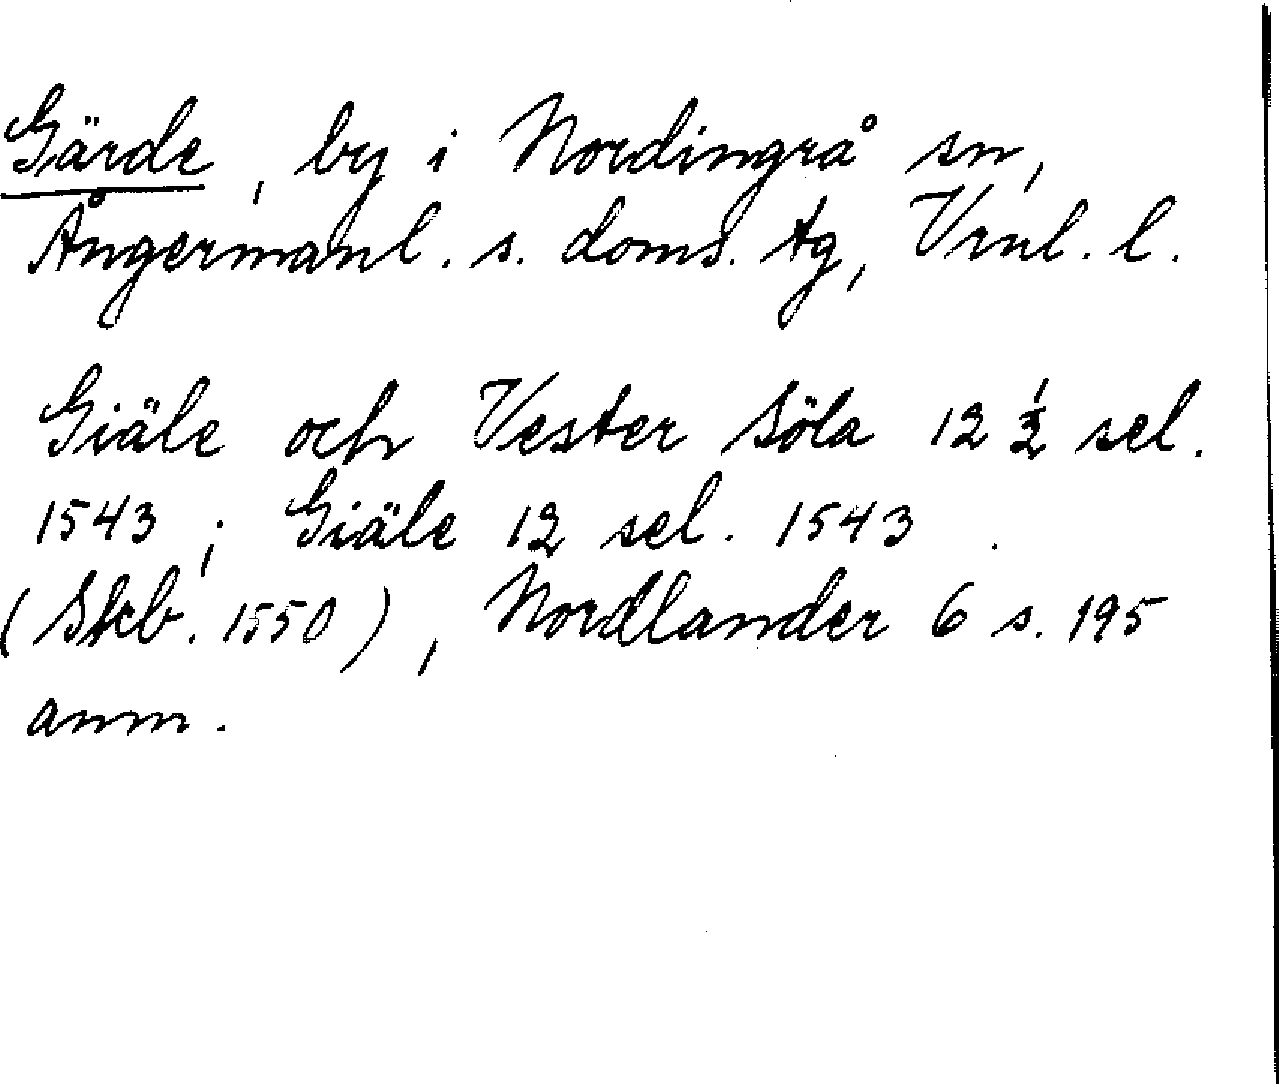 Gärde, by i Nordingrå sn,
Ångermanl. s. doms. tg, Vrnl. l.
Giäle och Vester Söla 12 ½ sel.
1543; Giäle 12 sel. 1543.
(Skb. 1550), Nordlander 6 s. 195
anm.